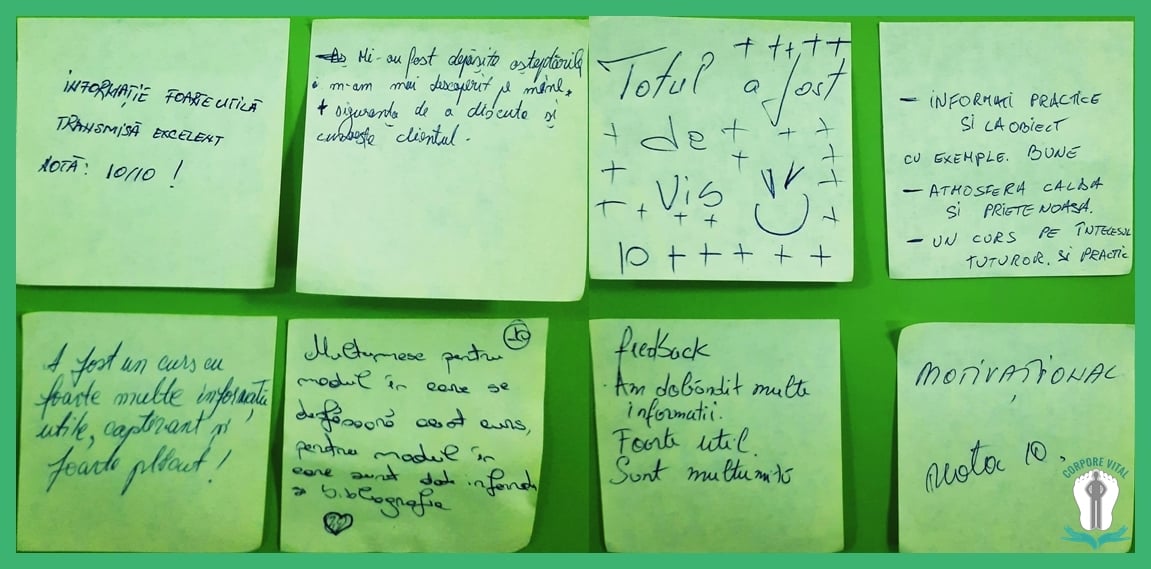 INFORMAȚIE FOARTE UTILĂ
TRANSMISĂ EXCELENT
NOTĂ: 10/10 !
Mi-au fost depășite așteptările
m-am mai descoperit pe mine,
+ siguranța de a discuta și
clientul.
+ + + + +
Totul a fost
+ de + + +
+ +
+ Vis +
+ + + + +
10 + + + + +
- INFORMATI PRACTICE
SI LA OBIECT
CU EXEMPLE. BUNE
- ATMOSFERA CALDA
SI PRIETENOASA.
- UN CURS PE ÎNTELESUL
TUTUROR. SI PRACTIC
A fost un curs cu
foarte multe informații
utile, captivant și
foarte plăcut!
10
Multumesc pentru
modul în care se
desfășoară acest curs,
pentru modul în
care sunt date
bibliografie
feedback
Am dobândit multe
informatii.
Foarte util.
Sunt multumită
MOTIVAȚIONAL
nota 10.
CORPORE VITAL